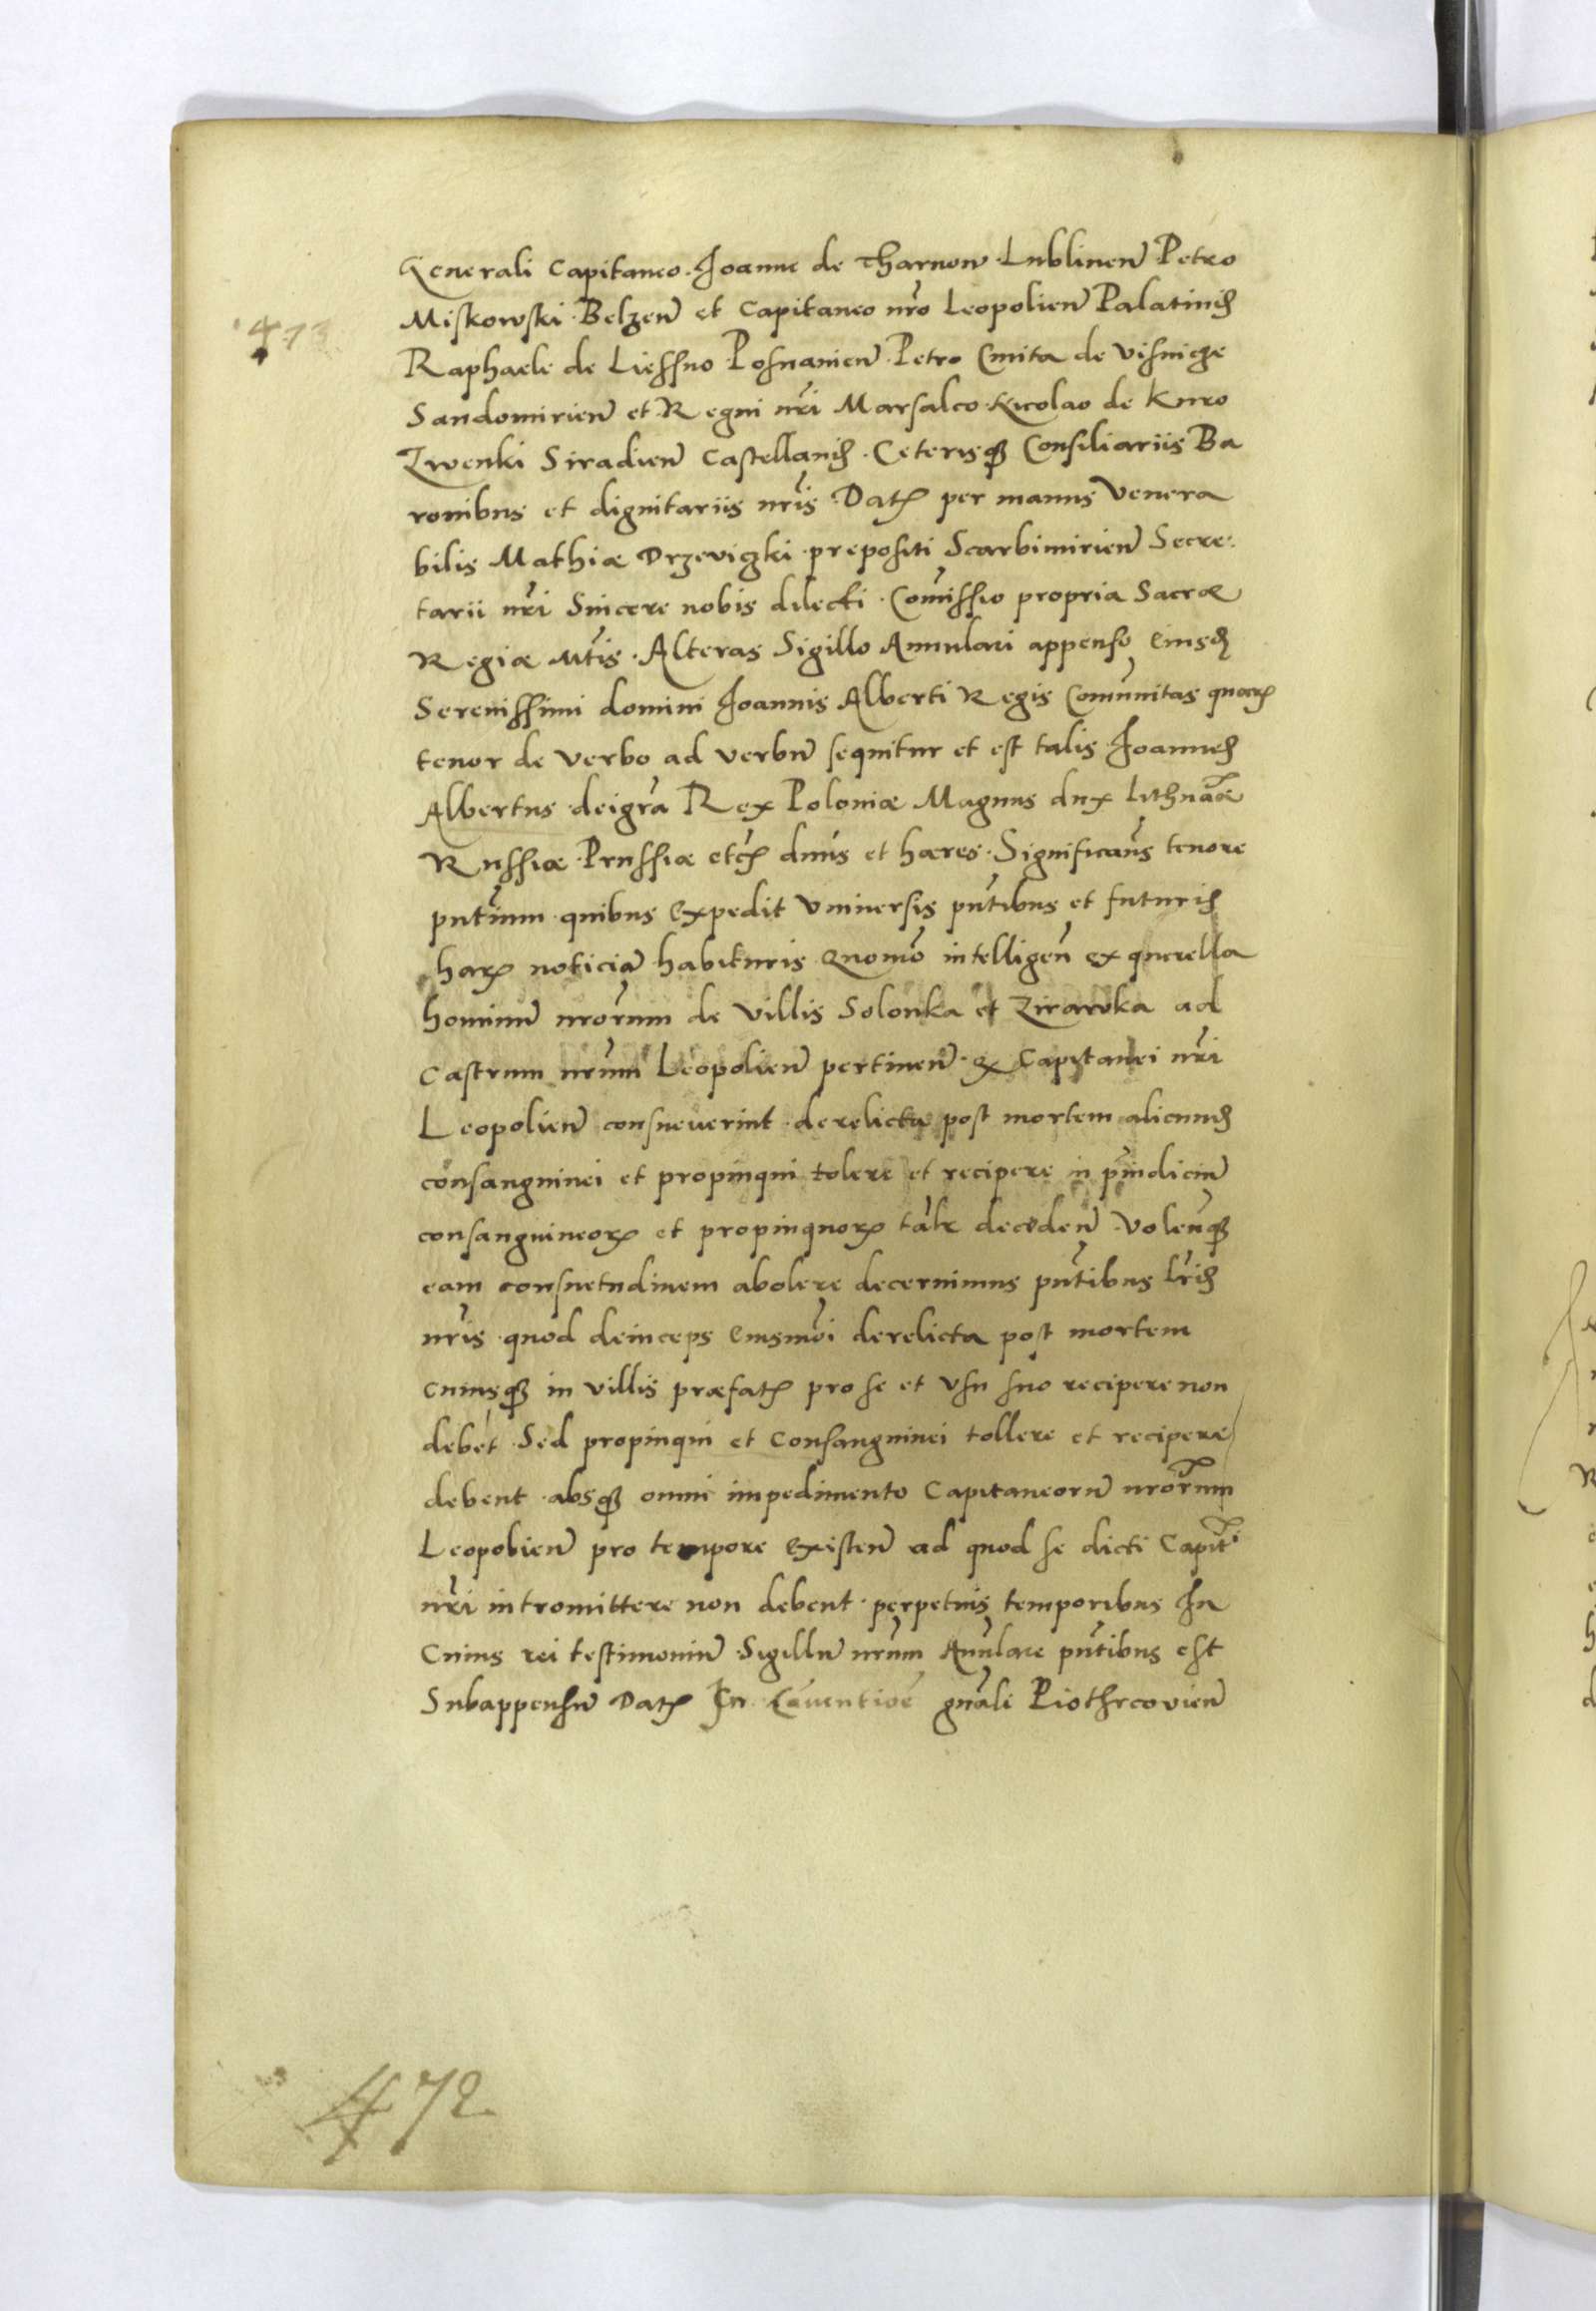 Generali Capitaneo. Joanne de Tharnow. Lublineñ Petro
Miskowski. Belzeñ et Capitaneo nr̃o Leopolieñ Palatinis
473
Raphaele de Liessno Posnanieñ. Petro Cmita de Visnicze
Sandomirieñ et Regni nr̃i Marsalco. Nicolao de Kuro
Zwenki Siradieñ Castellanis. Ceterisq; Consiliariis Ba
ronibus et dignitariis nr̃is. Datꝭ per manus Venera
bilis Mathiæ Drzeviczki. prepositi Scarbimirieñ Secre:
tarii nr̃i Sincere nobis dilecti. Com̃issio propria Sacræ
Regiæ Mt̃is. Alteras Sigillo Annulari appenso eiusdꝫ
Serenissimi domini Joannis Alberti Regis Com̃unitas quarꝝ
tenor de verbo ad verbũ sequitur et est talis. Joannes
Albertus. dei gr̃a Rex Poloniæ Magnus dux Lithuãæ
Russiæ. Prussiæ etc̃ꝭ dnũs et hæres. Significam̃s tenore
pñtium. quibus expedit Vniversis pñtibus et futuris
harꝝ noticiã habituris Quomõ intelligeñ ex querella
hominũ nr̃orum de Villis Solonka et Zirawka ad
castrum nr̃um Leopolieñ pertineñ. qꝫ Capitanei nr̃i
Leopolieñ consueverint. derelicta post mortem alicuius
consanguinei et propinqui tolere et recipere in p̃iudiciũ
consanguineorꝝ et propinquorꝝ tal̃r decedeñ. Voleñq;
eam consuetudinem abolere decernimus pñtibus lr̃is
nr̃is. quod deinceps eiusmõi derelicta post mortem
cuiusq; in villis præfatꝭ pro se et usu suo recipere non
debet. Sed propinqui et consanguinei tollere et recipere
debent. absq; omni impedimento Capitaneorũ nr̃orum
Leopolieñ pro tempore existeñ ad quod se dicti Capit̃i
nr̃i intromittere non debent. perpetuis temporibus In
Cuius rei testimoniũ. Sigillũ nr̃um Anũlare pñtibus est
Subappensũ Datꝭ In Cõuentiõe gnãli Piothrcovieñ
472